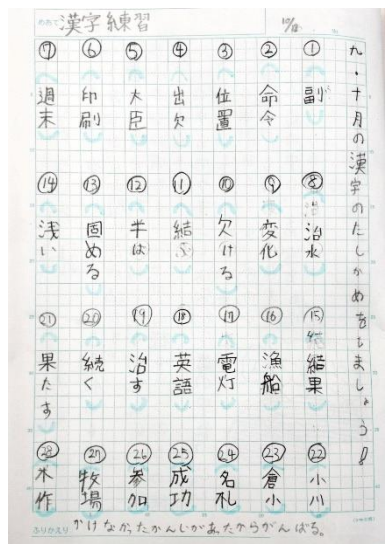 めあて 漢字練習
九・十月の漢字のたしかめをしましょう!
① 副
② 命令
③ 位置
④ 出欠
⑤ 大臣
⑥ 印刷
⑦ 週末
⑧ 治水
⑨ 変化
⑩ 欠ける
⑪ 結ぶ
⑫ 半は
⑬ 固める
⑭ 浅い
⑮ 結果
⑯ 漁船
⑰ 電灯
⑱ 英語
⑲ 治す
⑳ 続く
㉑ 果たす
㉒ 小川
㉓ 倉小
㉔ 名札
㉕ 成功
㉖ 参加
㉗ 牧場
㉘ 木作
ふりかえり かけなかったかんじがあったからがんばる。